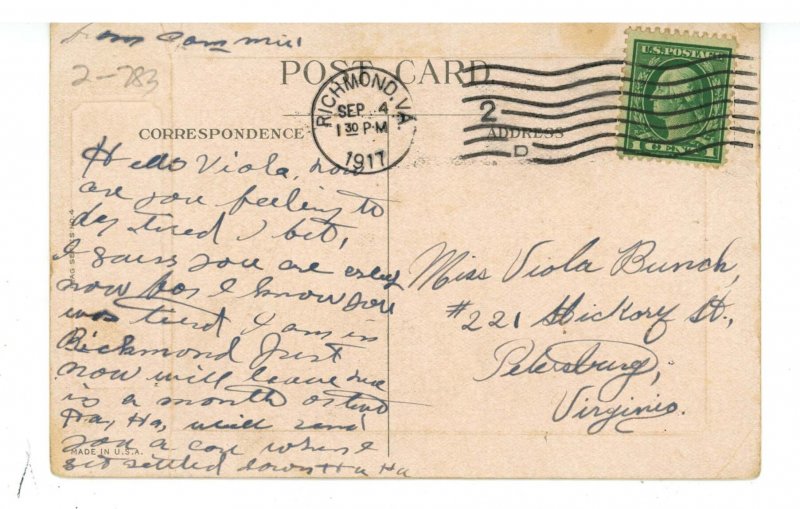 from
2-783
POST CARD
RICHMOND, VA.
SEP 4
1 30 P M
1917
2
D
U.S. POSTAGE
1 CENT 1
CORRESPONDENCE
ADDRESS
Hello Viola, how
are you feeling to
day tired I bet,
I guess you are
now I know you
was tired I am in
Richmond Just
now will leave
is a month
Ha, Ha, will send
you a car when I
get settled down Ha Ha
MADE IN U.S.A.
Miss Viola Bunch,
#221 Hickory St.,
Petersburg,
Virginia.